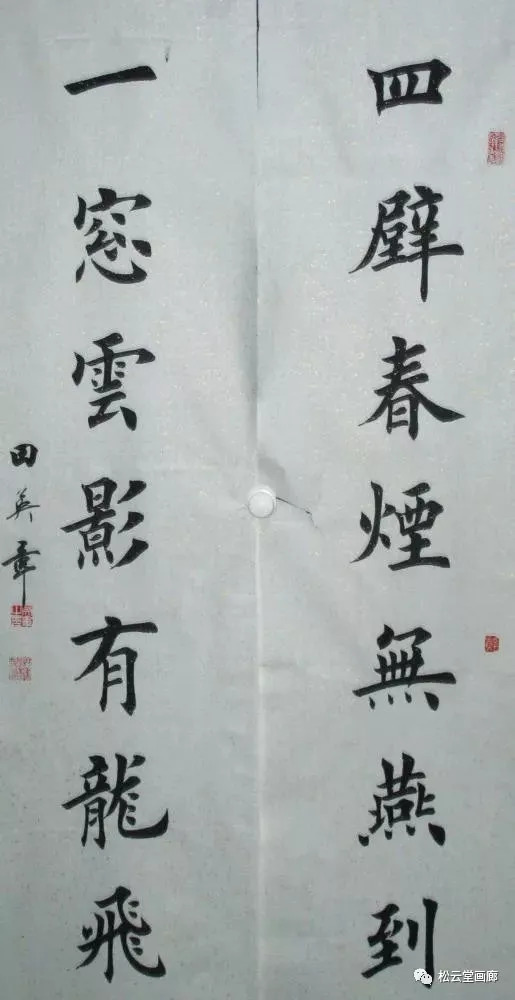 四壁春煙無燕到
一窓雲影有龍飛
田英章
松云堂画廊